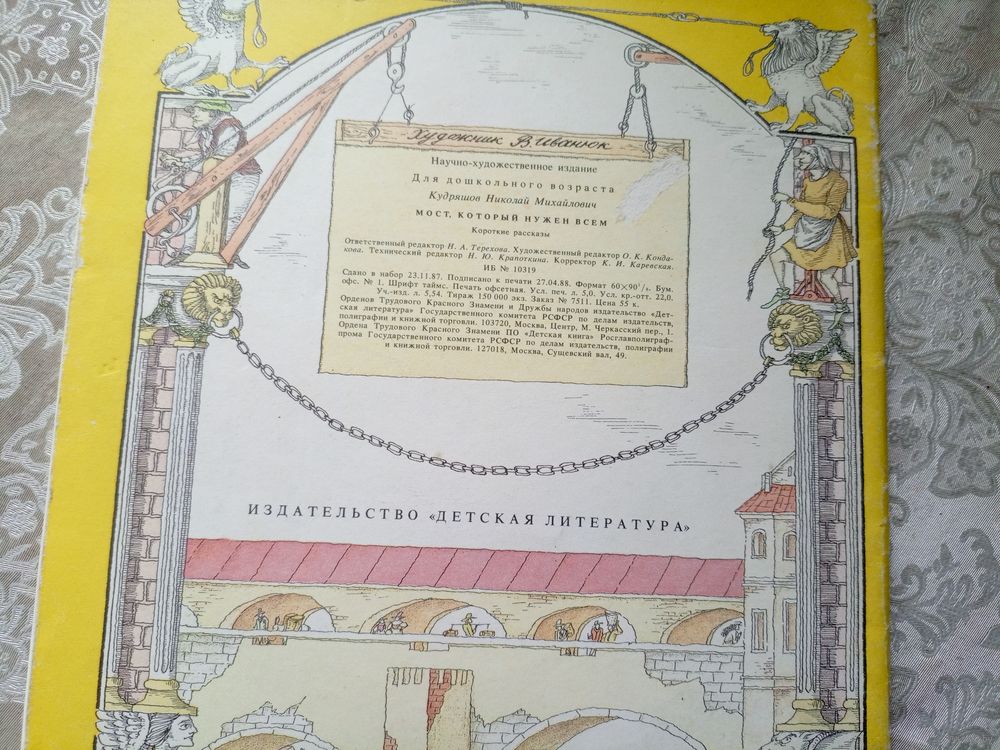 Художник В. Иванюк
Научно-художественное издание
Для дошкольного возраста
Кудряшов Николай Михайлович
МОСТ, КОТОРЫЙ НУЖЕН ВСЕМ
Короткие рассказы
Ответственный редактор Н. А. Терехова. Художественный редактор О. К. Конда-
кова. Технический редактор Н. Ю. Крапоткина. Корректор К. И. Каревская.
ИБ № 10319
Сдано в набор 23.11.87. Подписано к печати 27.04.88. Формат 60×90¹/₈. Бум.
офс. № 1. Шрифт таймс. Печать офсетная. Усл. печ. л. 5,0. Усл. кр.-отт. 22,0.
Уч.-изд. л. 5,54. Тираж 150 000 экз. Заказ № 7511. Цена 55 к.
Орденов Трудового Красного Знамени и Дружбы народов издательство «Дет-
ская литература» Государственного комитета РСФСР по делам издательств,
полиграфии и книжной торговли. 103720, Москва, Центр, М. Черкасский пер., 1.
Ордена Трудового Красного Знамени ПО «Детская книга» Росглавполиграф-
прома Государственного комитета РСФСР по делам издательств, полиграфии
и книжной торговли. 127018, Москва, Сущевский вал, 49.
ИЗДАТЕЛЬСТВО «ДЕТСКАЯ ЛИТЕРАТУРА»